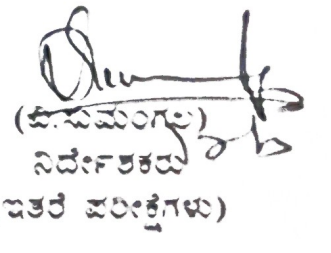 (ವಿ.ಸುಮಂಗಲ)
ನಿರ್ದೇಶಕರು
ಇತರೆ ಪರೀಕ್ಷೆಗಳು)